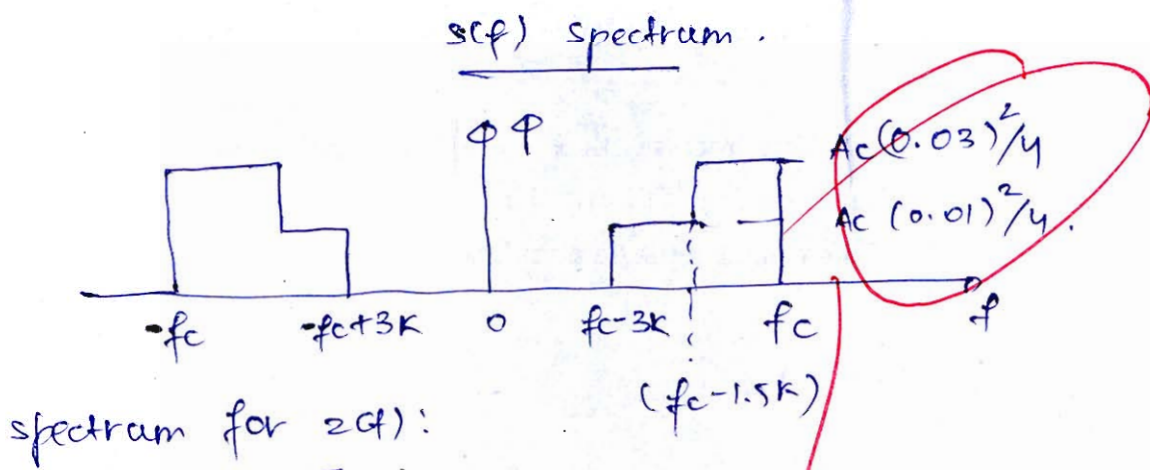 s(f) spectrum.
Ac(0.03)²/4
Ac (0.01)²/4.
-fc -fc+3K 0 fc-3K fc f
(fc-1.5K)
spectrum for z(f):